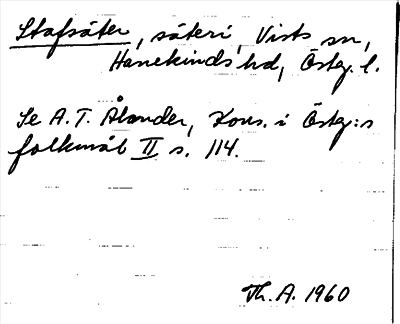 Stafsäter, säteri, Vists sn,
Hanekinds hd, Östg. l.
Se A. T. Ålander, Kons. i Östg:s
folkmål II s. 114.
Th. A. 1960